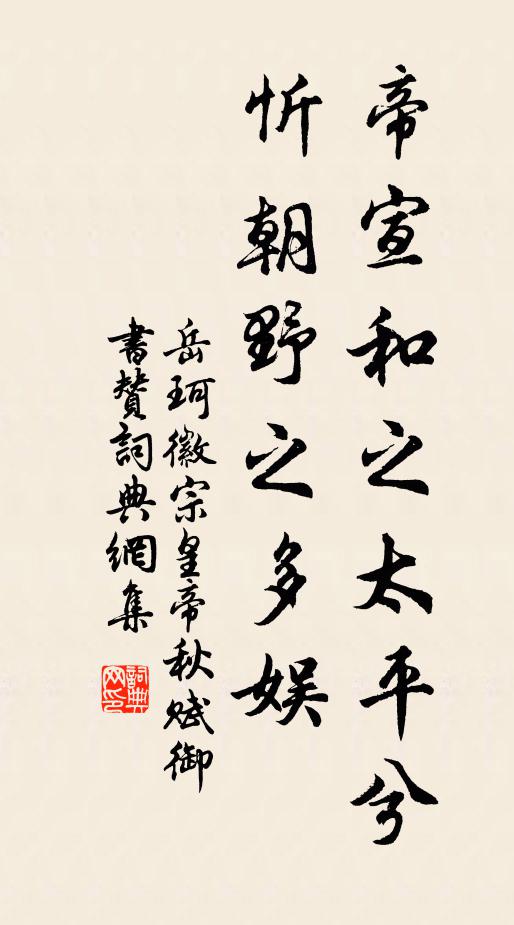 帝宣和之太平兮
忻朝野之多娱
岳珂徽宗皇帝秋赋御
書贊詞典網集
詞典
网印